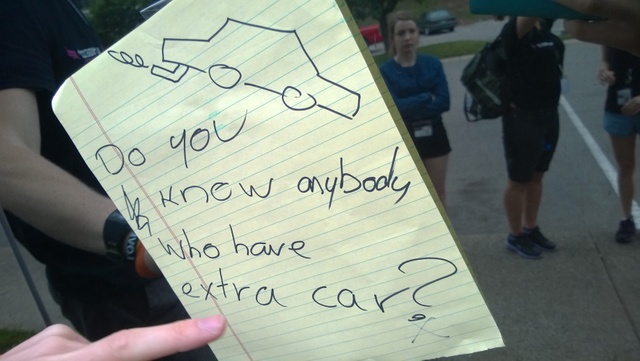 Do you
know anybody
who have
extra car?